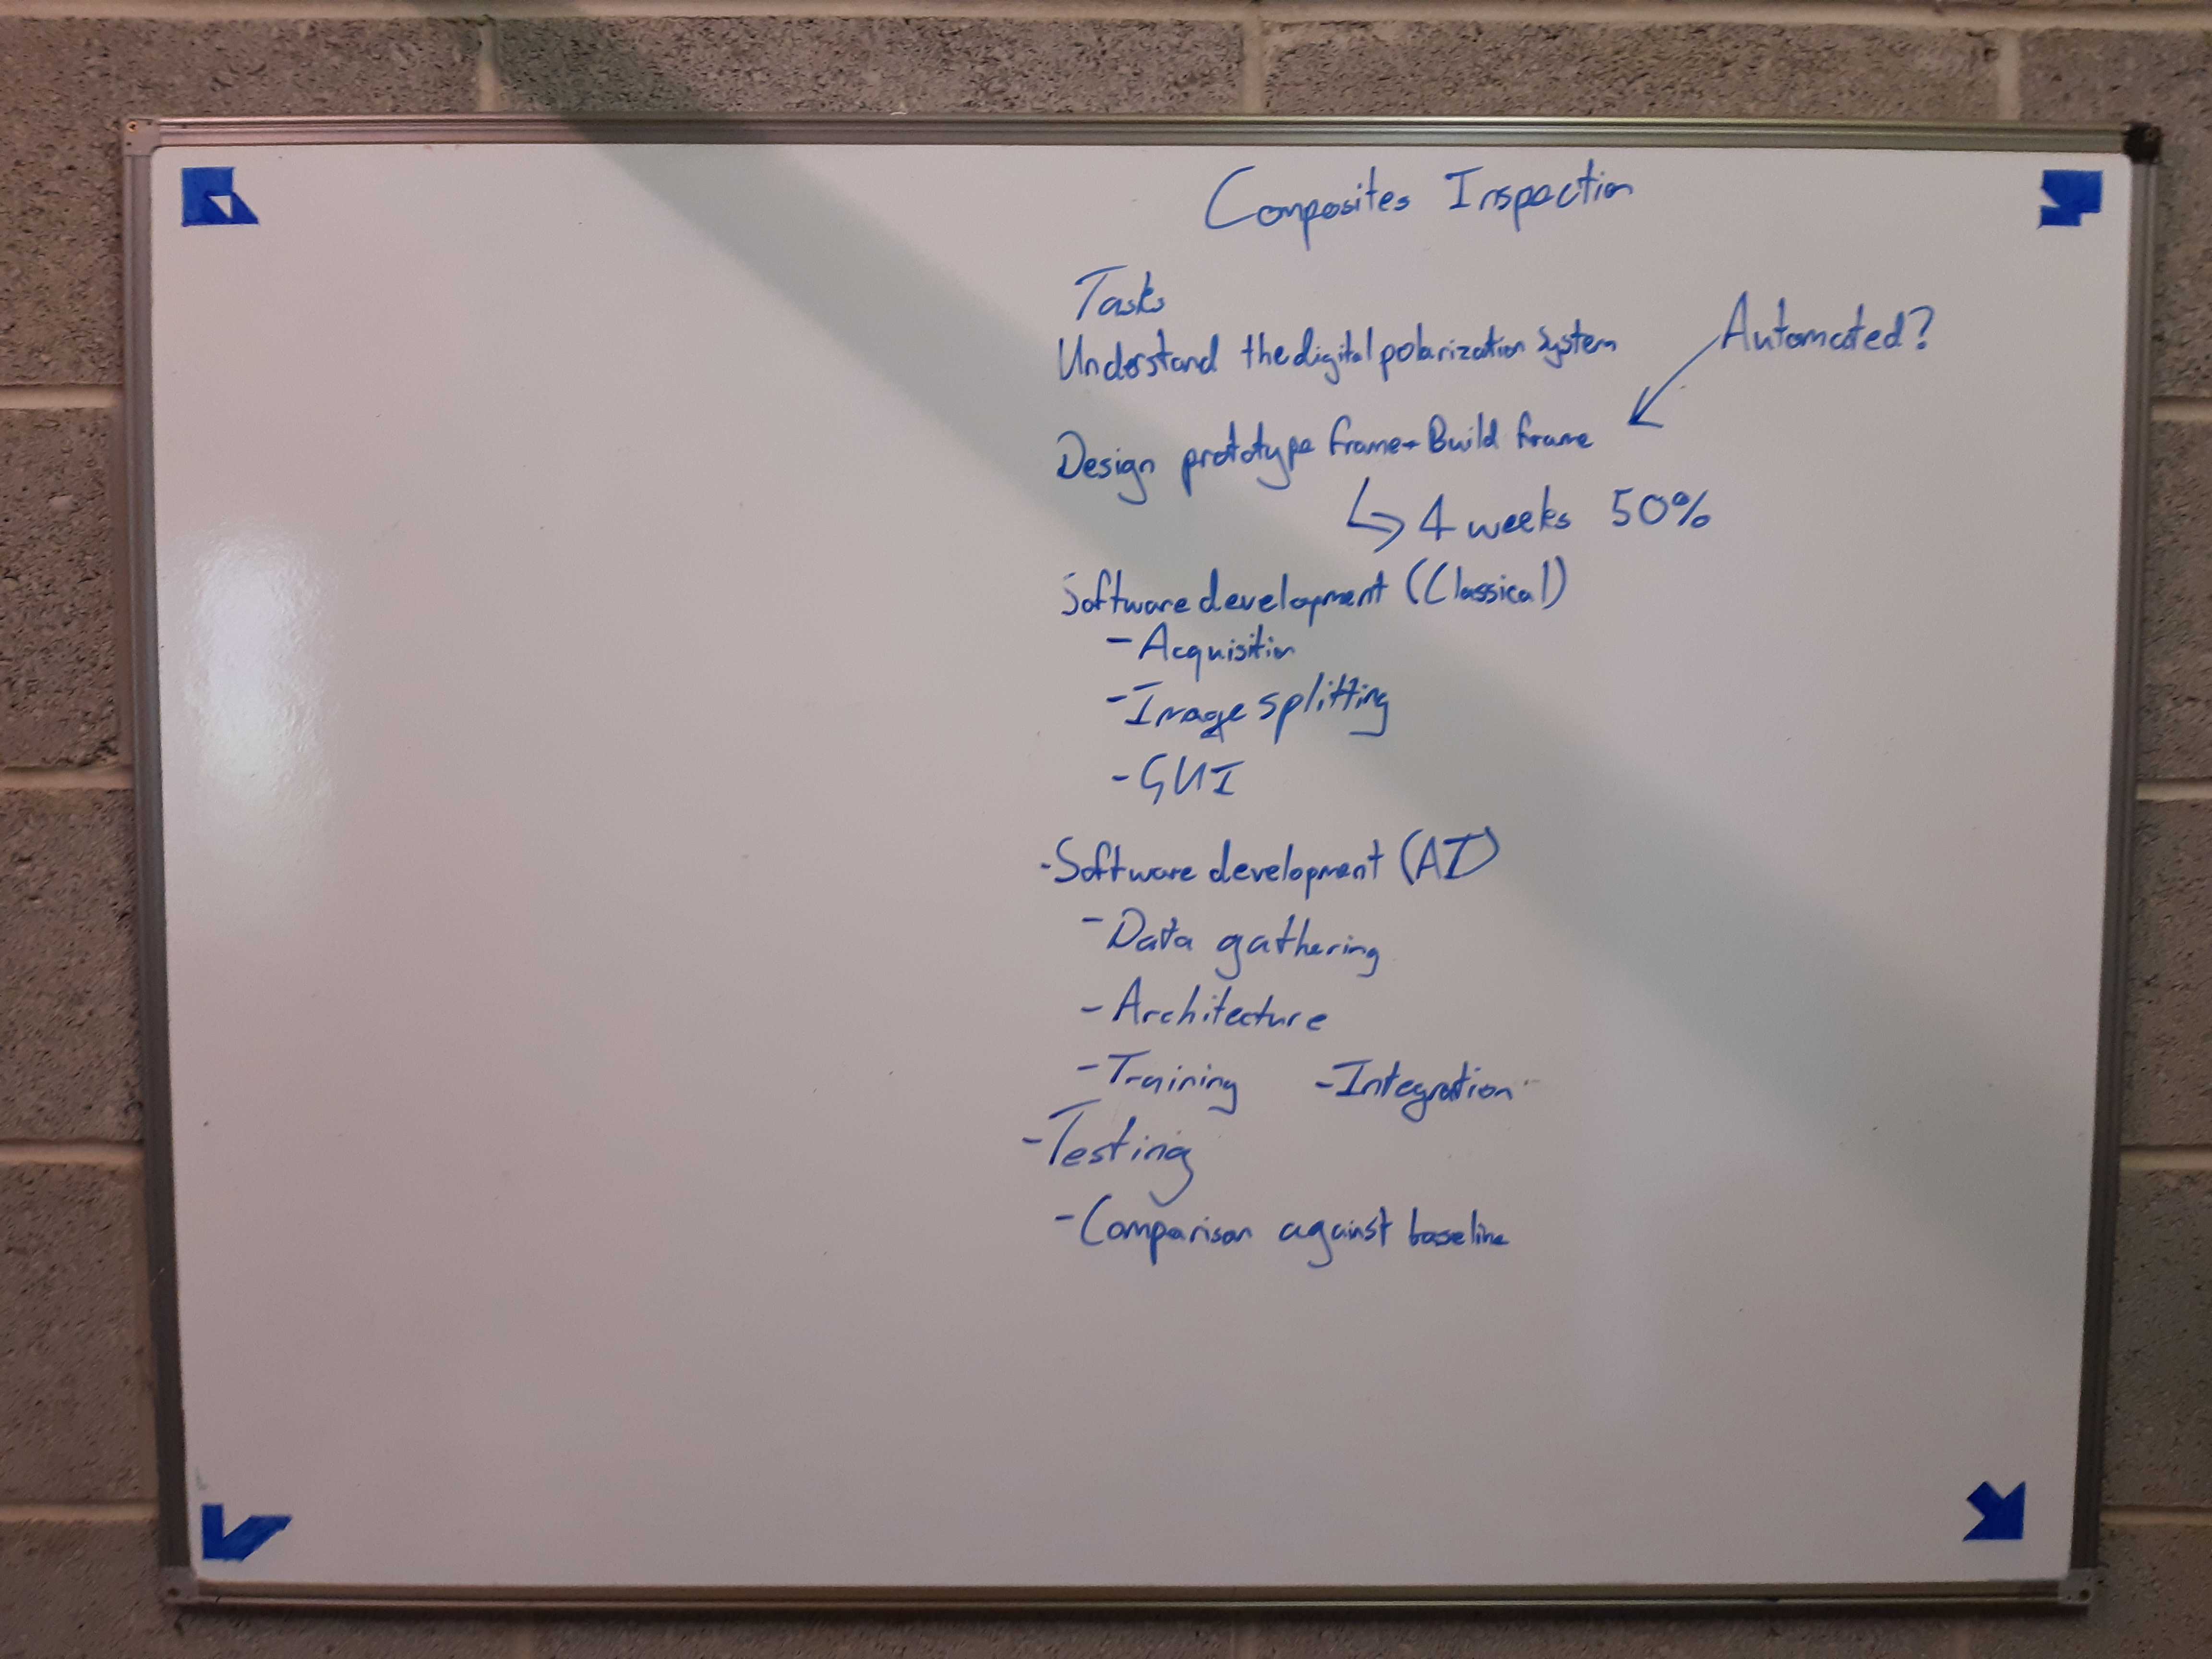 Composites Inspection
Tasks
Understand the digital polarization System
Automated?
Design prototype frame + Build frame
4 weeks 50%
Software development (Classical)
- Acquisition
- Image splitting
- GUI
- Software development (AI)
- Data gathering
- Architecture
- Training - Integration
- Testing
- Comparison against baseline